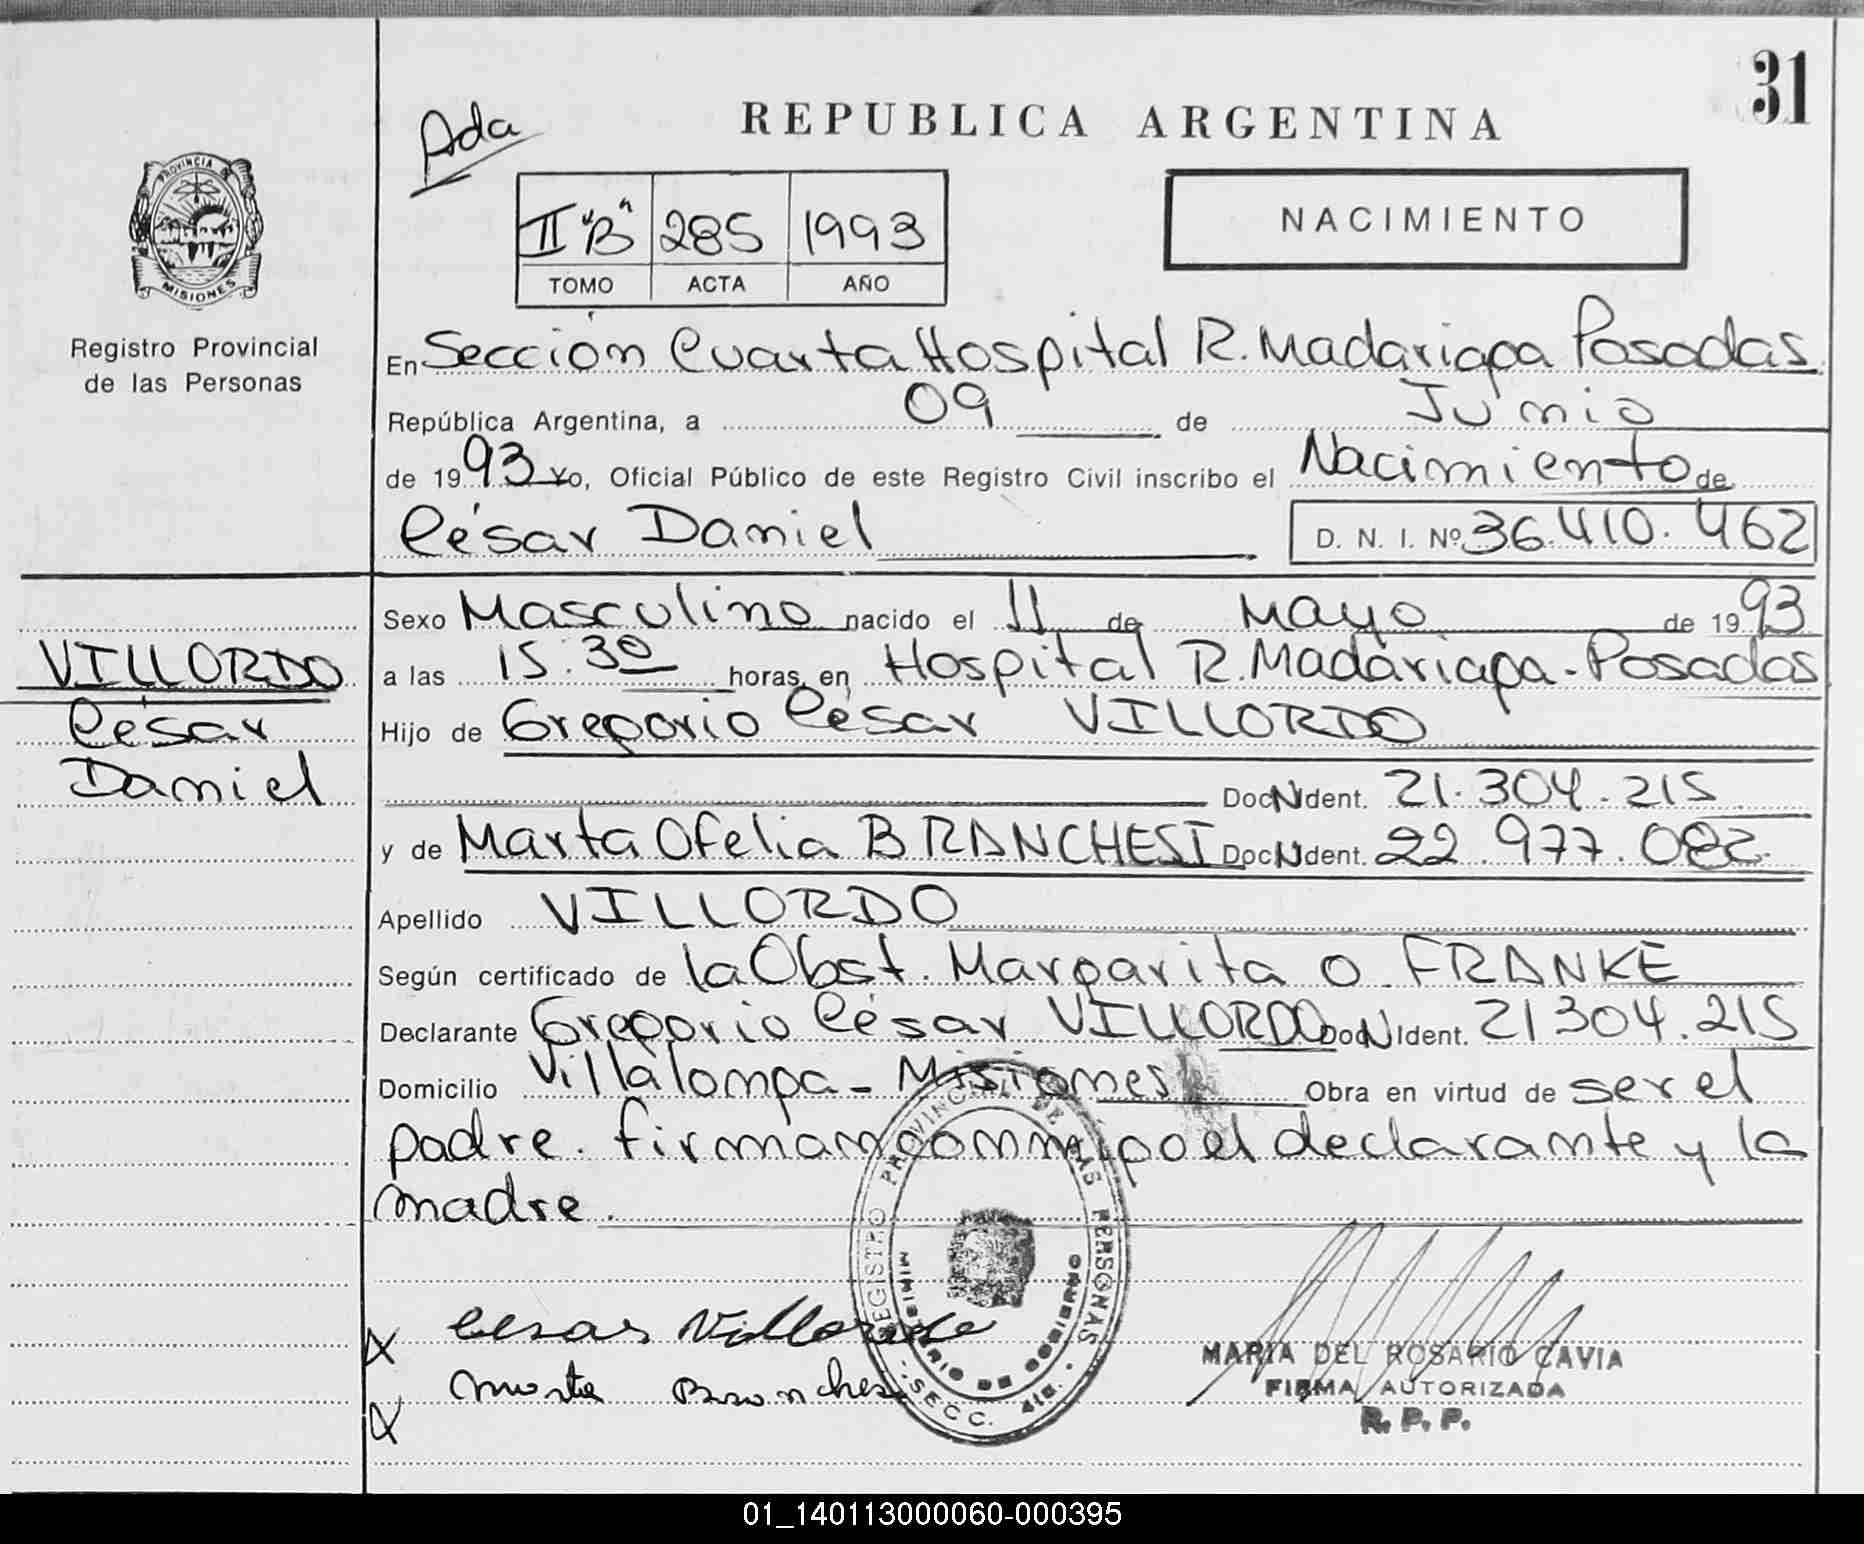 31
Ada
REPUBLICA ARGENTINA
PROVINCIA DE
MISIONES
Registro Provincial
de las Personas
NACIMIENTO
II "B" 285 1993
TOMO ACTA AÑO
En Sección Cuarta Hospital R. Madariaga Posadas
República Argentina, a 09 de Junio
de 1993 Yo, Oficial Público de este Registro Civil inscribo el Nacimiento de
César Daniel D. N. I. Nº 36.410.462
Sexo Masculino nacido el 11 de Mayo de 1993
a las 15:30 horas, en Hospital R. Madariaga - Posadas
Hijo de Gregorio César VILLORDO
Doc N Ident. 21.304.215
y de Marta Ofelia BRANCHESI Doc N Ident. 22.977.082
Apellido VILLORDO
Según certificado de la Obst. Margarita O. FRANKE
Declarante Gregorio César VILLORDO Doc N Ident. 21304.215
Domicilio Villalonga - Misiones Obra en virtud de ser el
padre. firman conmigo el declarante y la
madre.
VILLORDO
César
Daniel
Cesar Villordo
Marta Branchesi
REGISTRO PROVINCIAL DE LAS PERSONAS
MINISTERIO DE GOBIERNO
SECC. 4ta.
MARIA DEL ROSARIO CAVIA
FIRMA AUTORIZADA
R. P. P.
01_140113000060-000395